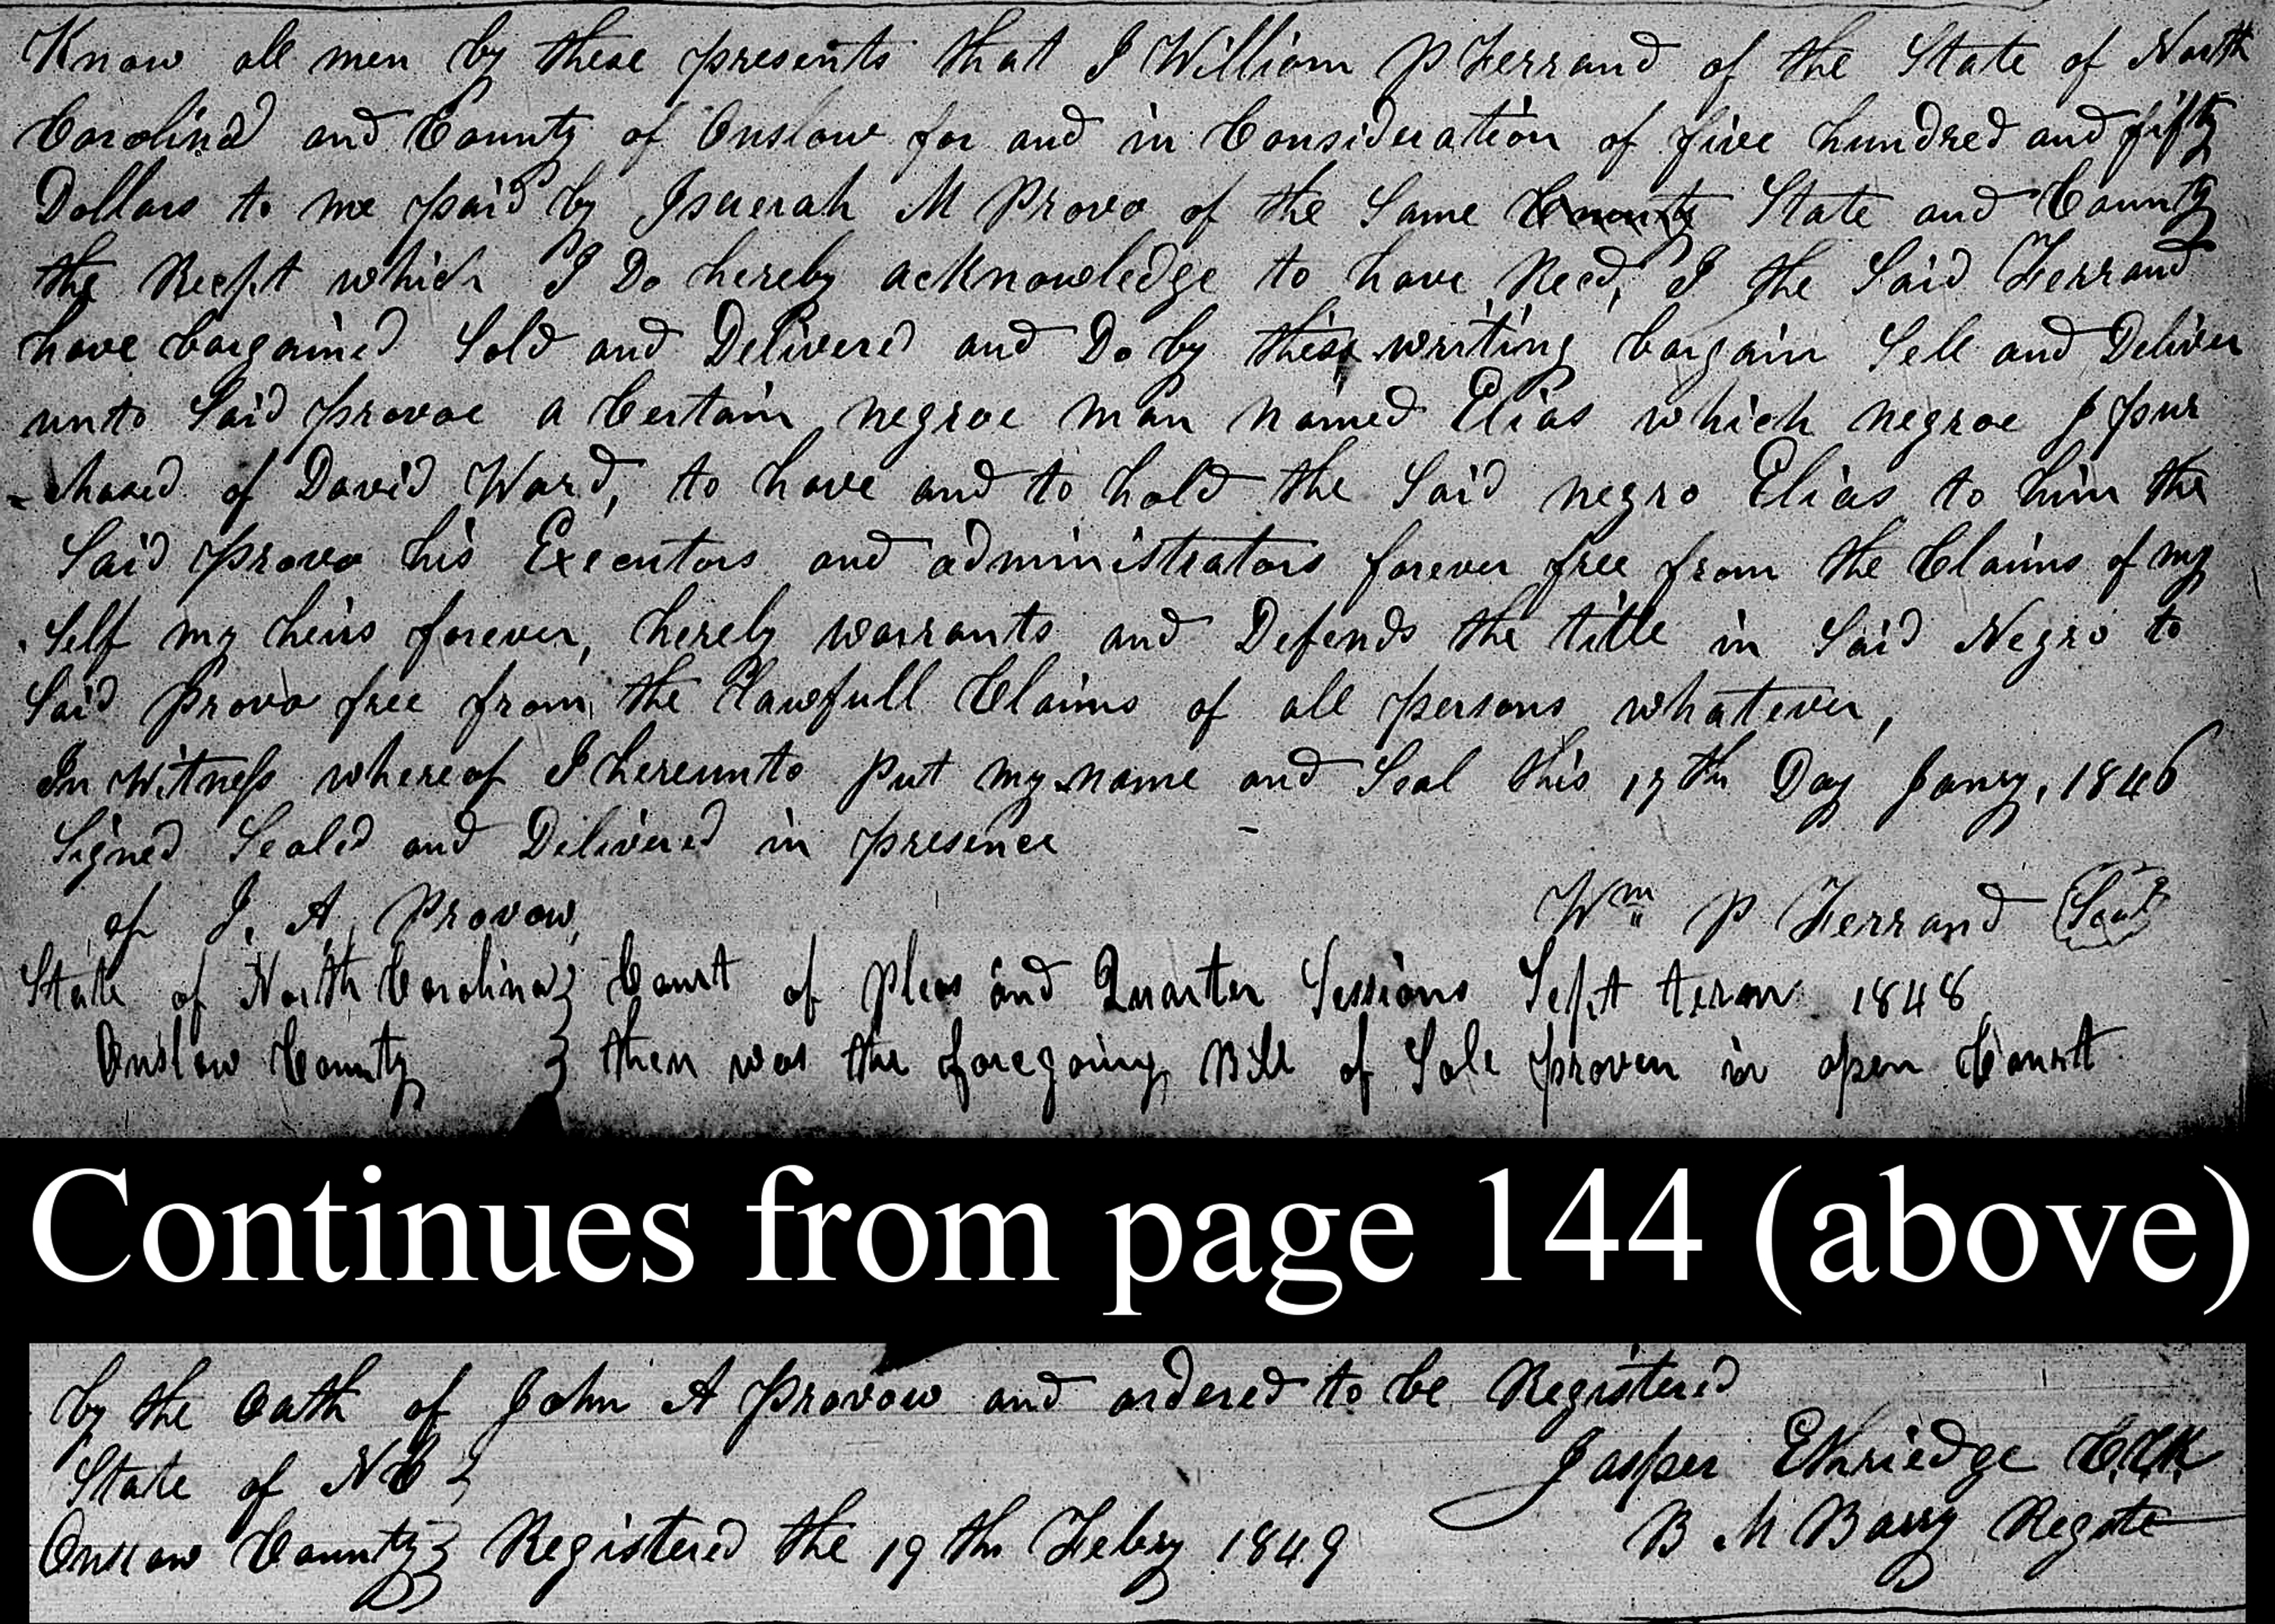 Know all men by these presents that I William P Ferrand of the State of North
Carolina and County of Onslow for and in Consideration of five hundred and fifty
Dollars to me paid by M Provo of the Same County State and County
the Recpt which I Do hereby acknowledge to have Recd, I the Said Ferrand
have bargained Sold and Delivered and Do by these writing bargain Sell and Deliver
unto Said provoe a Certain negroe man named Elias which negroe I pur
-chased of David Ward, to have and to hold the Said negro Elias to him the
Said provo his Executors and administrators forever free from the Claims of my
Self my heirs forever, hereby warrants and Defends the title in Said Negro to
Said Provo free from the Lawfull Claims of all persons whatever,
In Witness whereof I hereunto put my name and Seal this Day Jany, 1846
Signed Sealed and Delivered in presence
of J. A. Provow, Wm P Ferrand (Seal)
State of North Carolina } Court of pleas and Quarter Sessions Sept term 1848
Onslow County } then was the foregoing Bill of Sale proven in open Court
Continues from page 144 (above)
by the oath of John A Provow and ordered to be Registered
State of NC } Jasper Ethriedge
Onslow County } Registered the 19th Febry 1849 B M Barry Regste